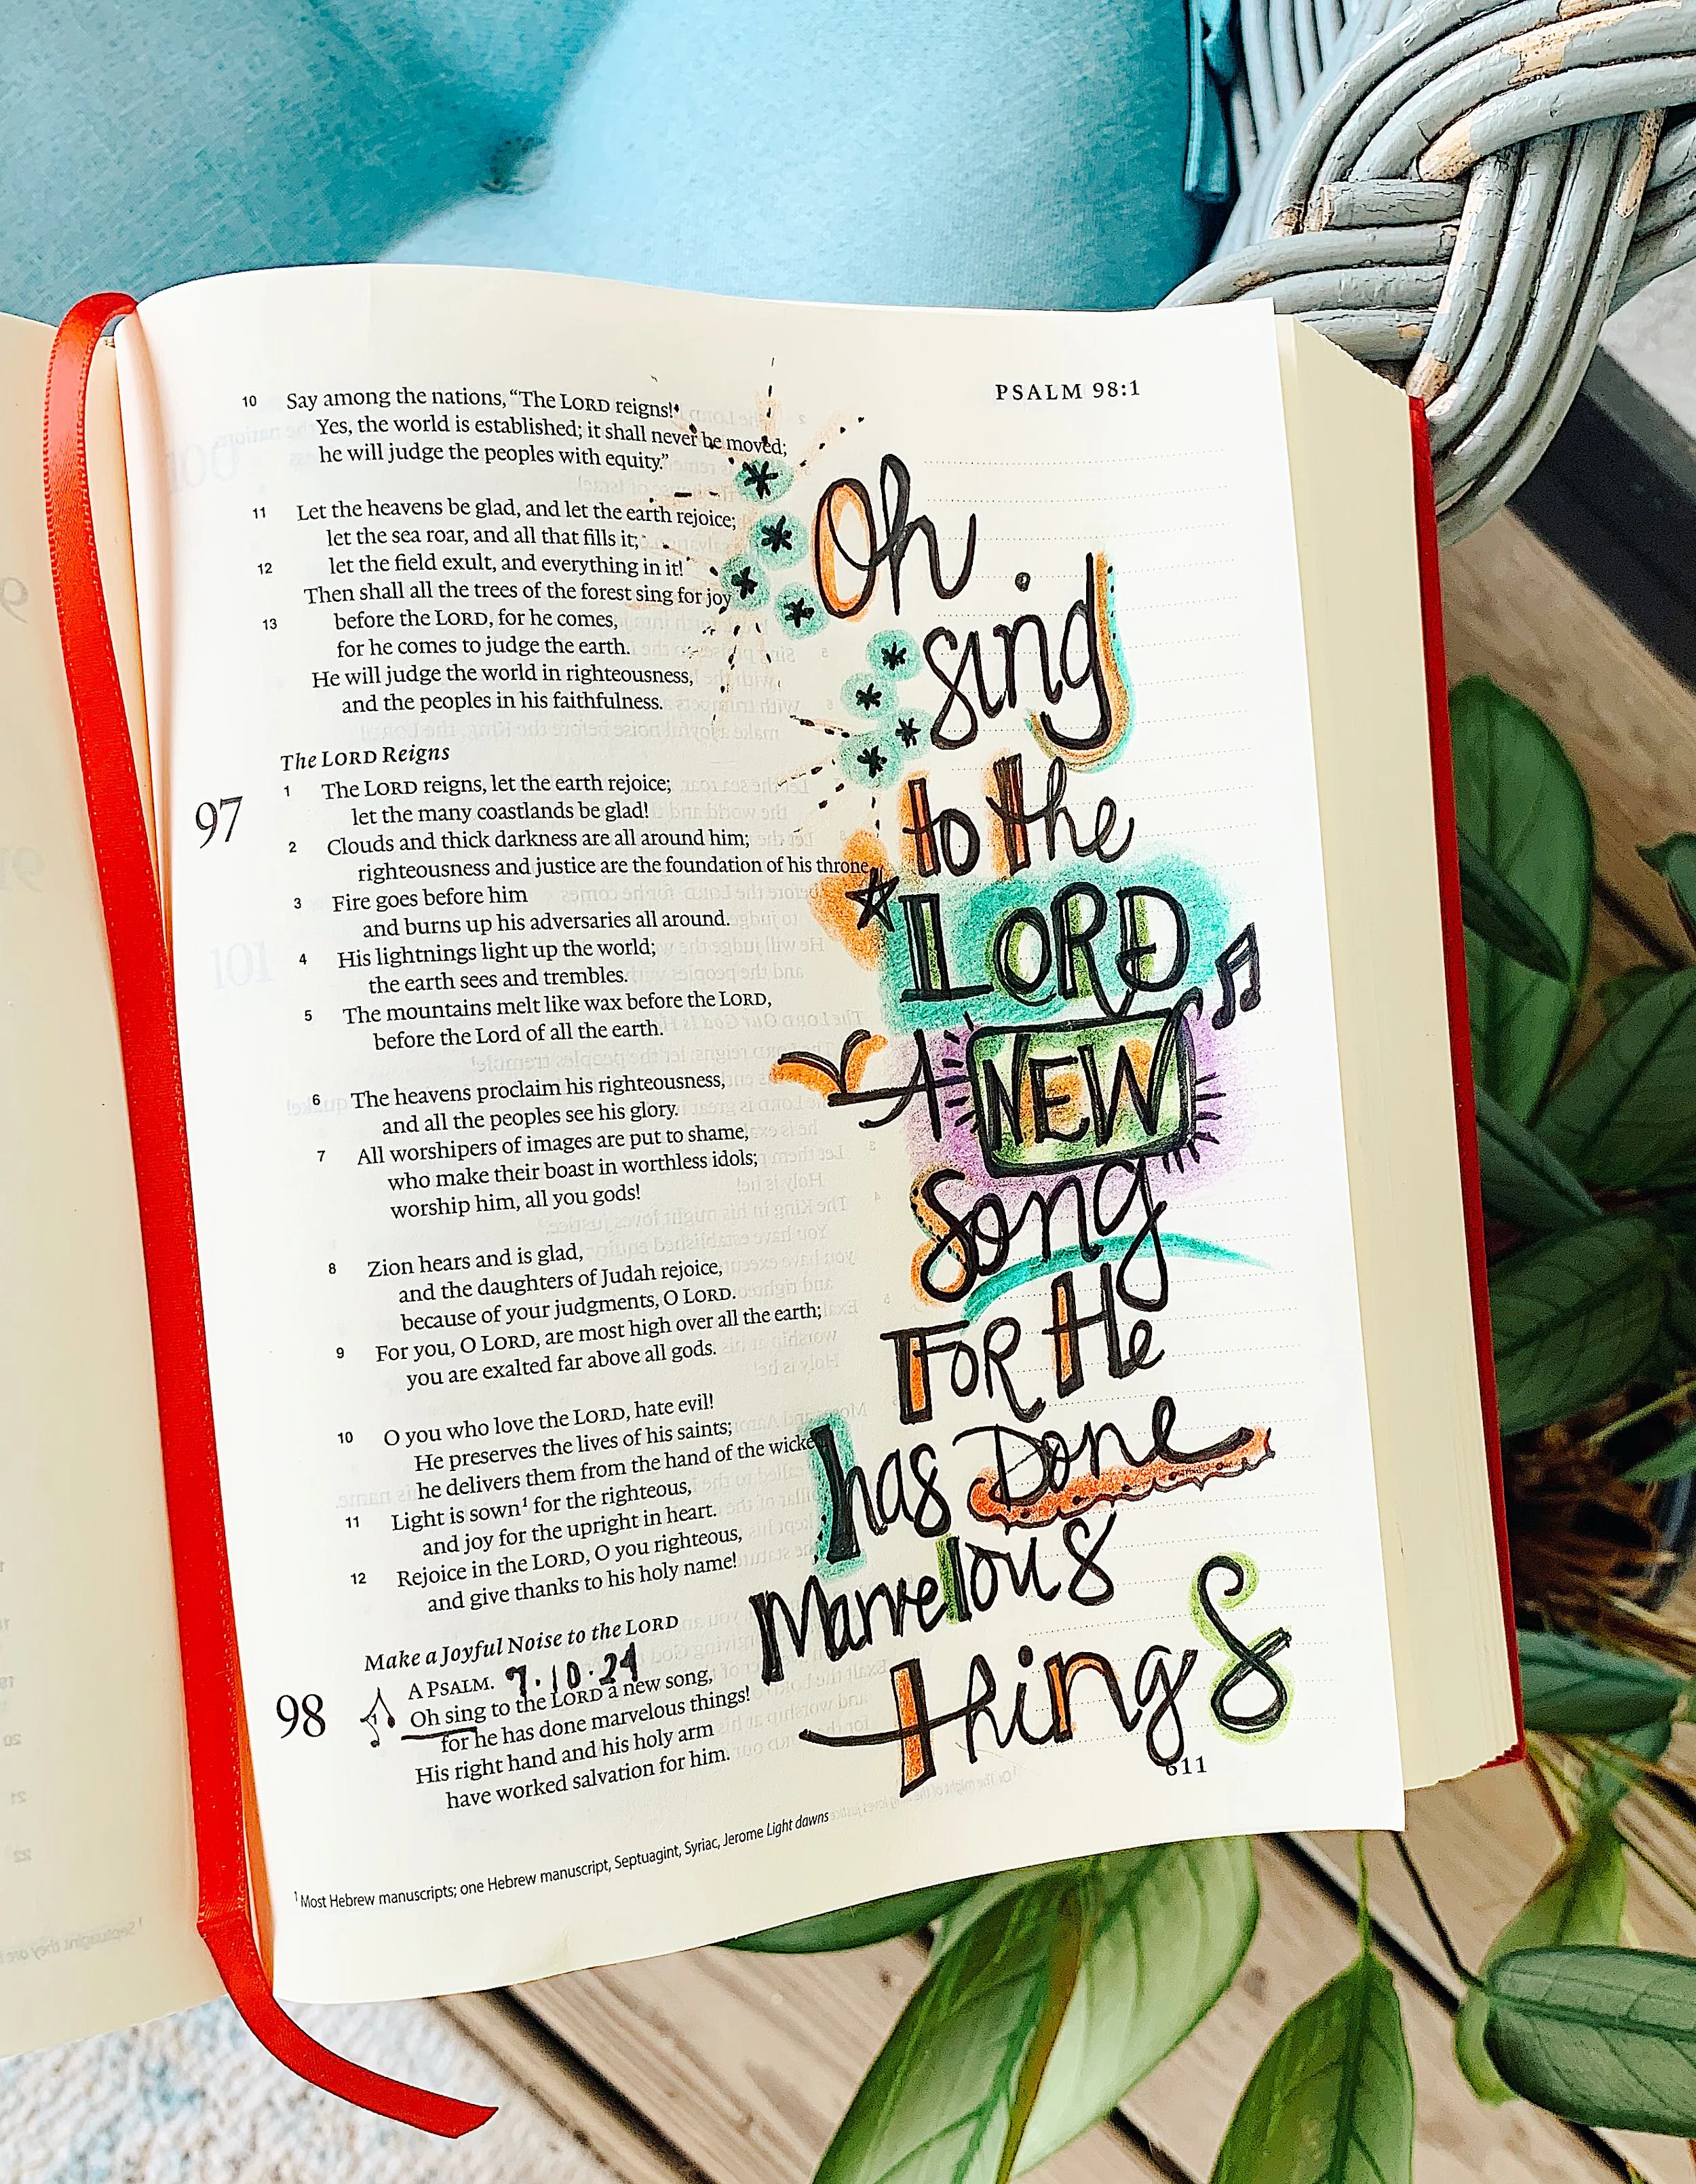 PSALM 98:1
10 Say among the nations, “The LORD reigns!
Yes, the world is established; it shall never be moved;
he will judge the peoples with equity.”
11 Let the heavens be glad, and let the earth rejoice;
let the sea roar, and all that fills it;
12 let the field exult, and everything in it!
Then shall all the trees of the forest sing for joy
13 before the LORD, for he comes,
for he comes to judge the earth.
He will judge the world in righteousness,
and the peoples in his faithfulness.
The LORD Reigns
97
1 The LORD reigns, let the earth rejoice;
let the many coastlands be glad!
2 Clouds and thick darkness are all around him;
righteousness and justice are the foundation of his throne
3 Fire goes before him
and burns up his adversaries all around.
4 His lightnings light up the world;
the earth sees and trembles.
5 The mountains melt like wax before the LORD,
before the Lord of all the earth.
6 The heavens proclaim his righteousness,
and all the peoples see his glory.
7 All worshipers of images are put to shame,
who make their boast in worthless idols;
worship him, all you gods!
8 Zion hears and is glad,
and the daughters of Judah rejoice,
because of your judgments, O LORD.
9 For you, O LORD, are most high over all the earth;
you are exalted far above all gods.
10 O you who love the LORD, hate evil!
He preserves the lives of his saints;
he delivers them from the hand of the wicke
11 Light is sown¹ for the righteous,
and joy for the upright in heart.
12 Rejoice in the LORD, O you righteous,
and give thanks to his holy name!
Make a Joyful Noise to the LORD
A PSALM. 7.10.24
98
1 Oh sing to the LORD a new song,
for he has done marvelous things!
His right hand and his holy arm
have worked salvation for him.
¹ Most Hebrew manuscripts; one Hebrew manuscript, Septuagint, Syriac, Jerome Light dawns
Oh
sing
to the
LORD
A NEW
Song
FOR He
has Done
Marvelous
things
611